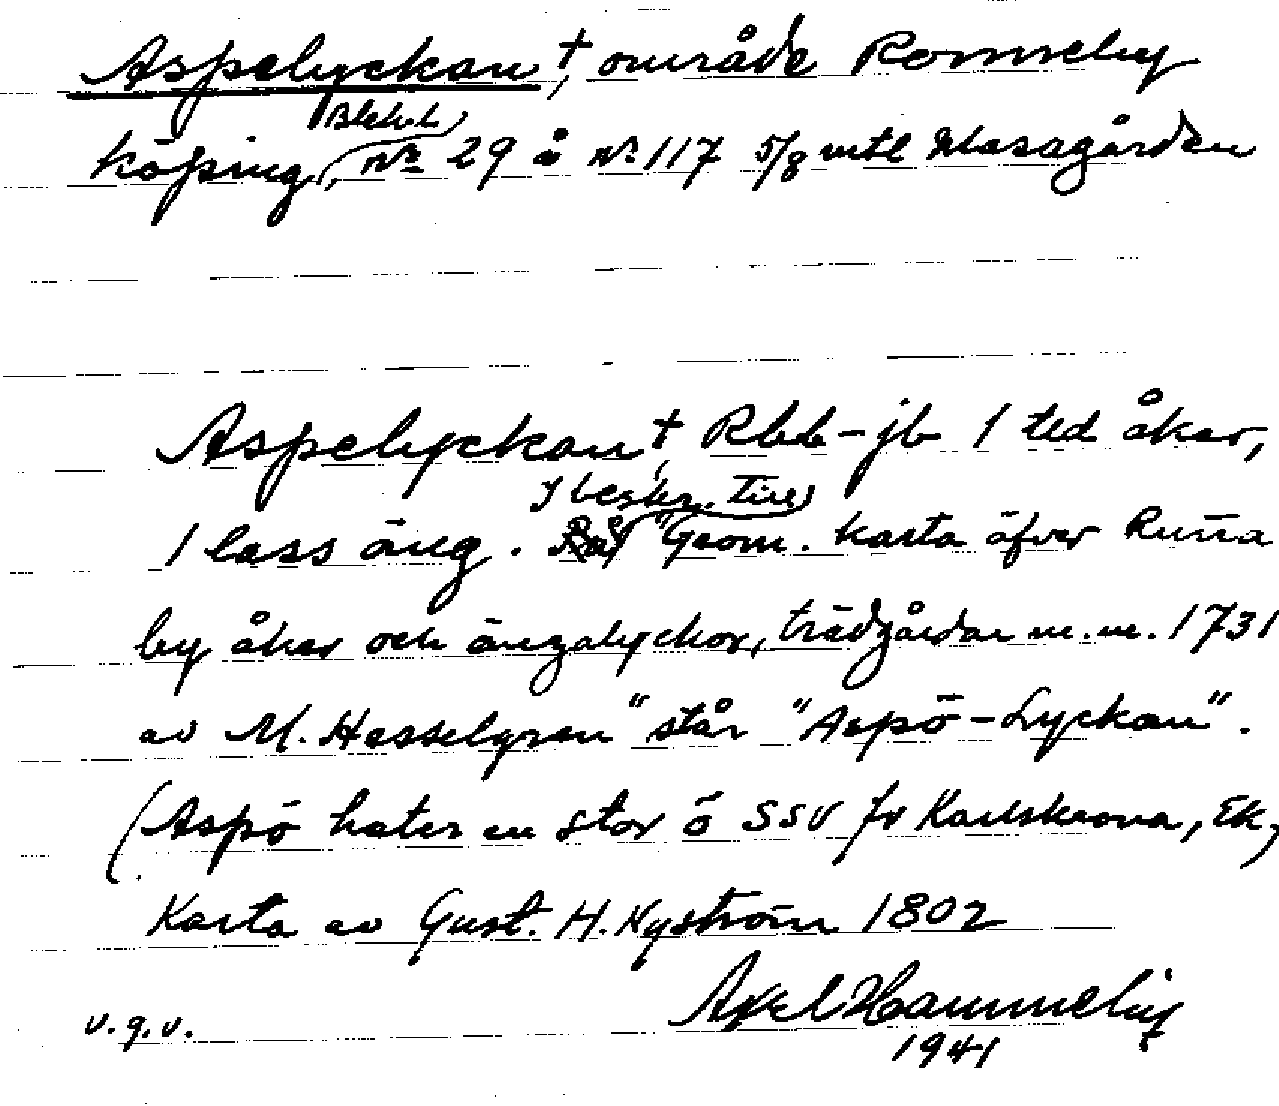 Aspelyckan †, område Ronneby
Blekel
köping, № 29 å № 117 5/8 mtl Masagården
Aspelyckan †, Rbb-jb 1 tld åker,
I beskr. till
1 lass äng. "Geom. karta öfver Runa
by åker och ängalyckor, trädgårdar m.m. 1731
av M. Hesselgren" står "Aspö-Lyckan".
(Aspö heter en stor ö SSV fr Karlskrona, Ek,
Karta av Gust. H. Nyström 1802
Axel Hammelin
v.g.v.
1941